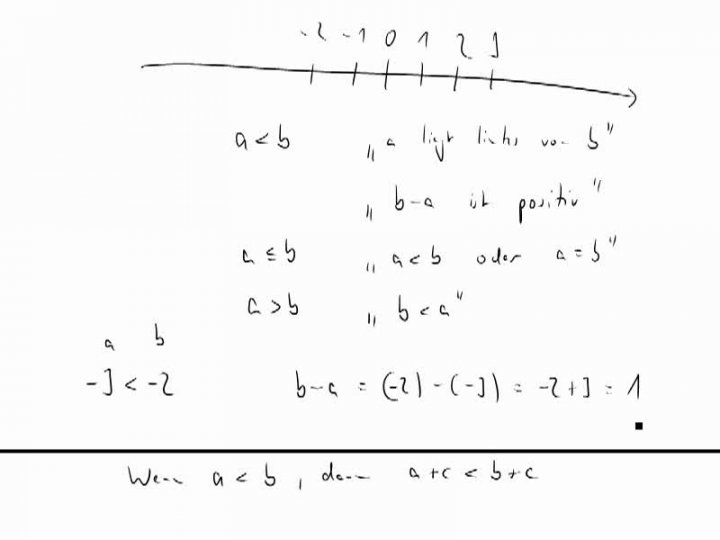 -2 -1 0 1 2 3
a < b „a liegt links von b"
„b-a ist positiv"
a ≤ b „a < b oder a = b"
a > b „b < a"
a b
-3 < -2 b-a = (-2) - (-3) = -2+3 = 1
Wenn a < b, dann a+c < b+c